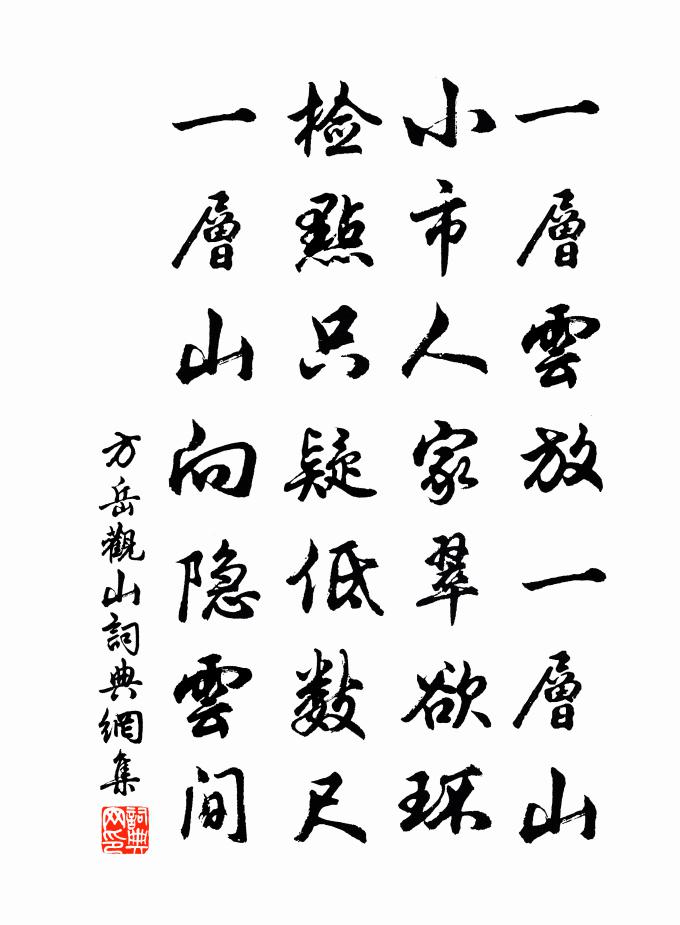 一層雲放一層山
小市人家翠欲环
检點只疑低数尺
一層山向隐雲间
方岳觀山詞典網集
詞典
网印